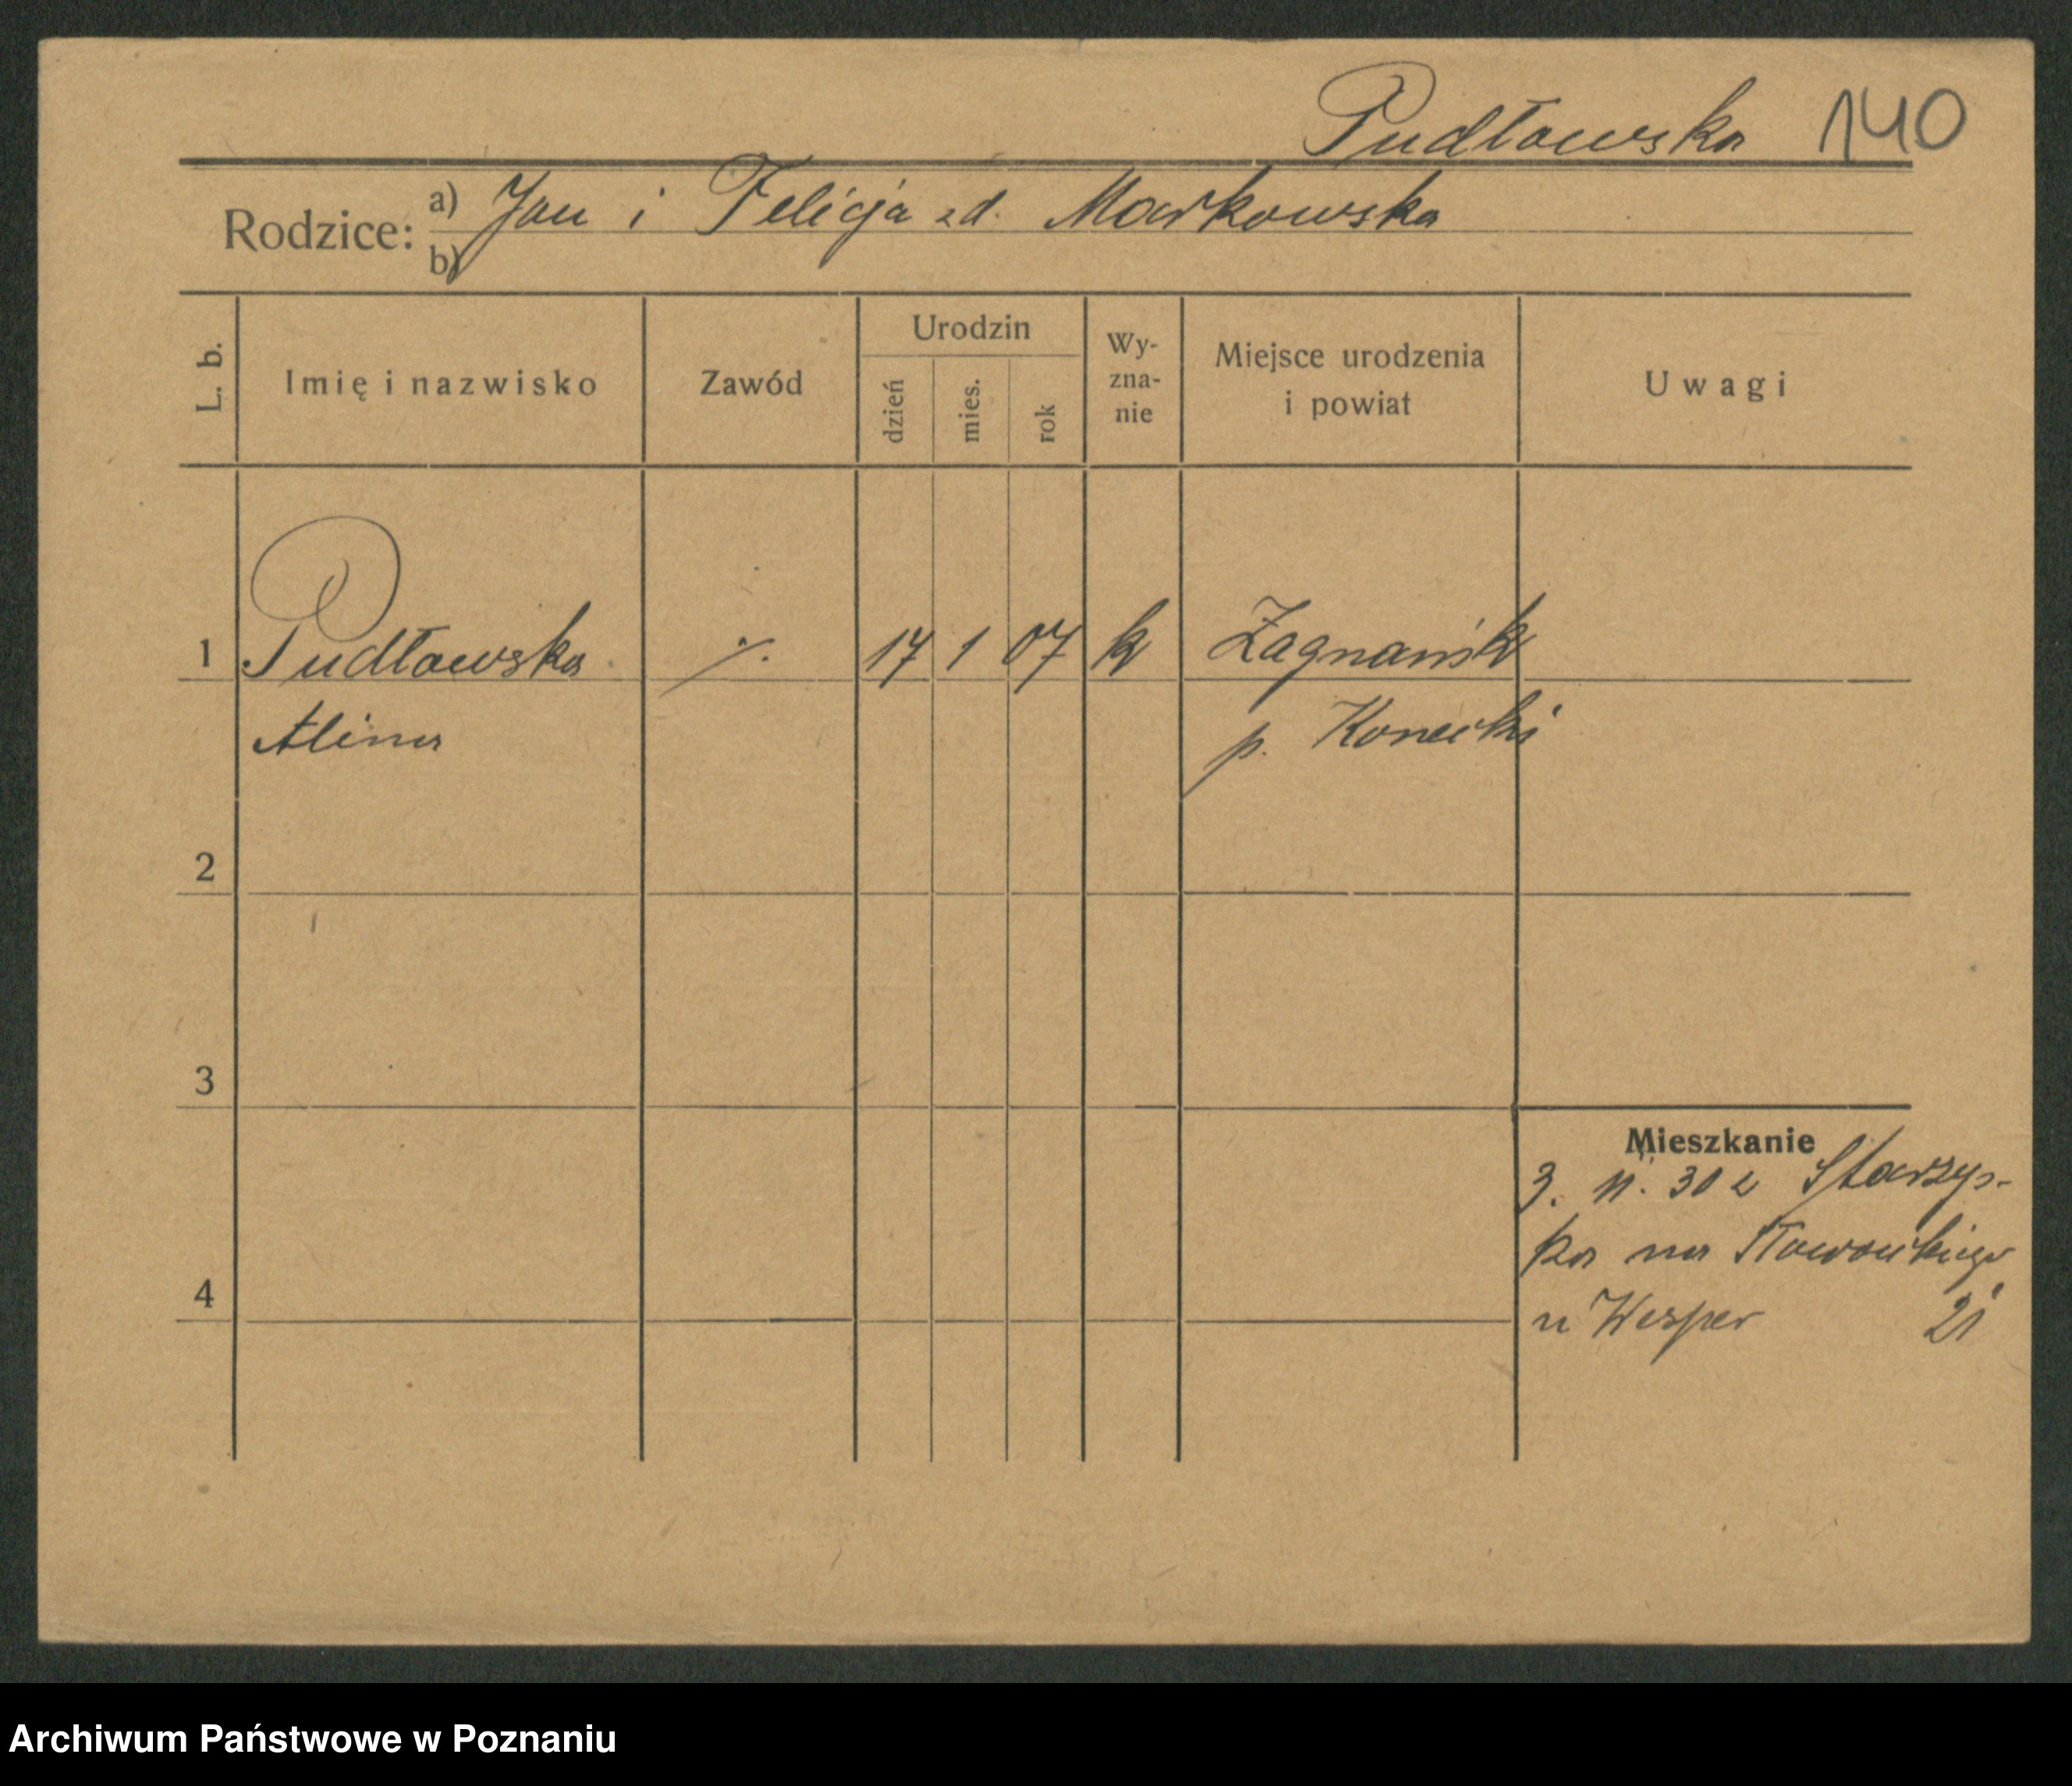 Pudłowska 140
Rodzice: a) Jan i Felicja zd. Markowska
b)
L. b. Imię i nazwisko Zawód Urodzin dzień mies. rok Wy-zna-nie Miejsce urodzenia i powiat Uwagi
1 Pudłowska ·/. 17 1 07 k Zagnańsk
Alina p. Konecki
2
3
Mieszkanie
3. 11. 30 z Starzys-
ka na Słowackiego
4
u Wesper 21
Archiwum Państwowe w Poznaniu